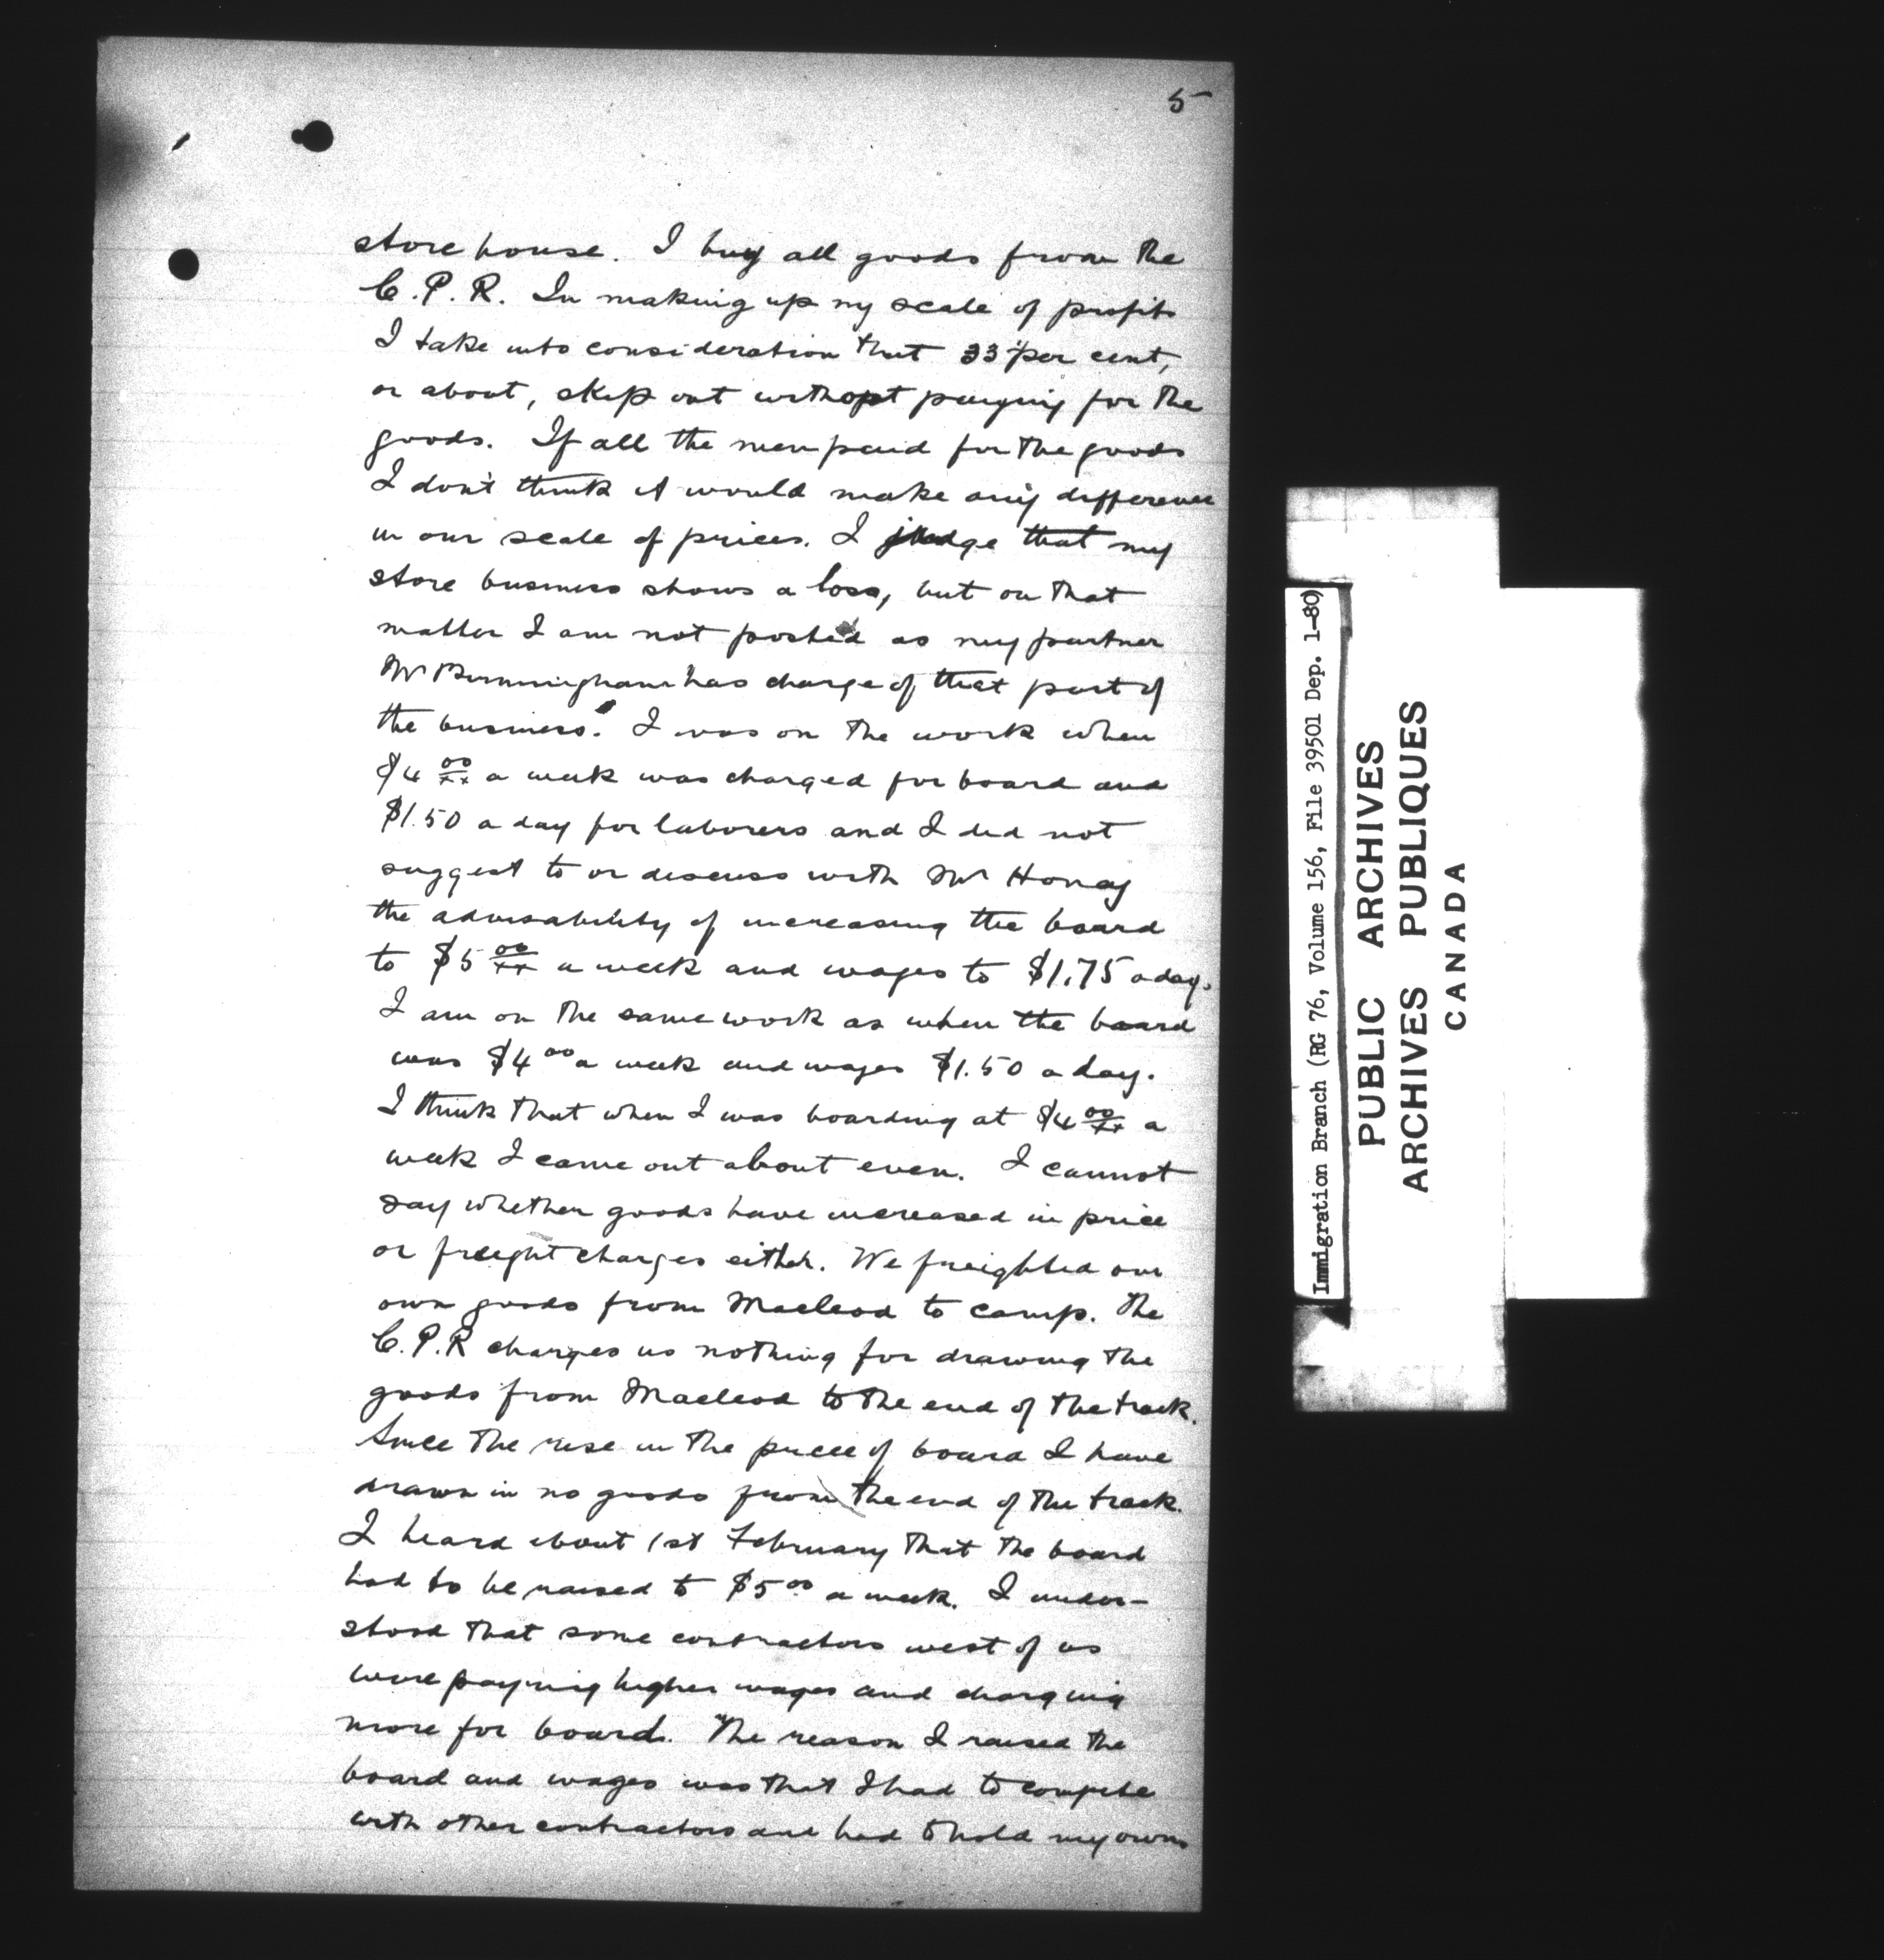 5
store house. I buy all goods from the
C.P.R. In making up my scale of profits
I take into consideration that 33 per cent,
or about, skip out without paying for the
goods. If all the men paid for the goods
I don't think it would make any difference
in our scale of prices. I judge that my
store business shows a loss, but on that
matter I am not posted as my partner
Mr Birmingham has charge of that part of
the business. I was on the work when
$4 00/xx a week was charged for board and
$1.50 a day for laborers and I did not
suggest to or discuss with Mr Haney
the advisability of increasing the board
to $5 00/xx a week and wages to $1.75 a day.
I am on the same work as when the board
was $4 00 a week and wages $1.50 a day.
I think that when I was boarding at $4 00/xx a
week I came out about even. I cannot
say whether goods have increased in price
or freight charges either. We freighted our
own goods from Macleod to camp. The
C.P.R charges us nothing for drawing the
goods from Macleod to the end of the track.
Since the rise in the price of board I have
drawn in no goods from the end of the track.
I heard about 1st February that the board
had to be raised to $5 00 a week. I under-
stood that some contractors west of us
were paying higher wages and charging
more for board. The reason I raised the
board and wages was that I had to compete
with other contractors and had to hold my own
Immigration Branch (RG 76, Volume 156, File 39501 Dep. 1-80)
PUBLIC ARCHIVES
ARCHIVES PUBLIQUES
CANADA